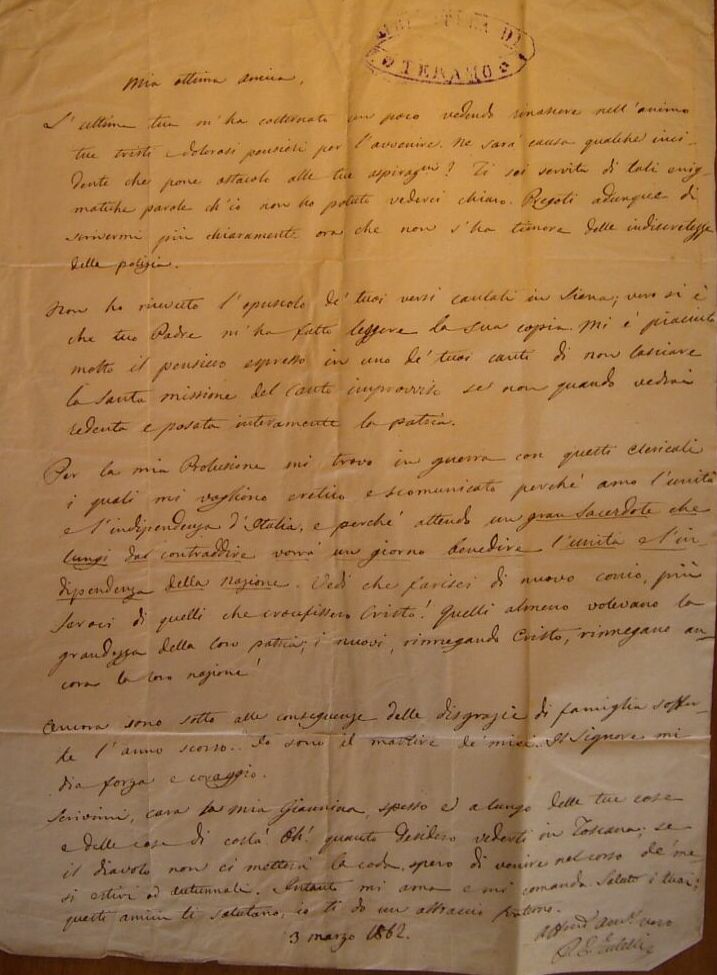 DI
TERAMO
Mia ottima amica,
L'ultima tua m'ha costernato un poco vedendo rinascere nell'animo
tuo tristi e dolorosi pensieri per l'avvenire. Ne sarà causa qualche inci-
dente che pone ostacolo alle tue aspirazni? Ti sei servita di tali enig-
matiche parole ch'io non ho potuto vederci chiaro. Pregoti adunque di
scrivermi più chiaramente ora che non s'ha timore delle indiscretezze
della polizia.
Non ho ricevuto l'opuscolo de' tuoi versi cantati in Siena; vero si è
che tuo Padre m'ha fatto leggere la sua copia. Mi è piaciuto
molto il pensiero espresso in uno de' tuoi canti di non lasciare
la santa missione del canto improvviso se non quando vedrai
redenta e posata interamente la patria.
Per la mia Prolusione mi trovo in guerra con questi clericali
i quali mi vogliono eretico e scomunicato perché amo l'unità
e l'indipendenza d'Italia, e perché attendo un gran Sacerdote che
lungi dal contraddire vorrà un giorno benedire l'unità e l'in
dipendenza della nazione. Vedi che farisei di nuovo conio, più
feroci di quelli che crocifissero Cristo! Quelli almeno volevano la
grandezza della loro patria; i nuovi, rinnegando Cristo, rinnegano an-
cora la loro nazione!
Ancora sono sotto alle conseguenze delle disgrazie di famiglia soffer-
te l'anno scorso. Io sono il martire de' miei. Il Signore mi
dia forza e coraggio.
Scrivimi, cara la mia Giannina, spesso e a lungo delle tue cose
e delle cose di costà. Oh! quanto desidero vederti in Toscana; se
il diavolo non ci metterà la coda, spero di venire nel corso de' me
si estivi od autunnali. Intanto mi ama e mi comanda. Saluto i tuoi;
questi amici ti salutano; io ti do un abbraccio fraterno.
3 marzo 1862.